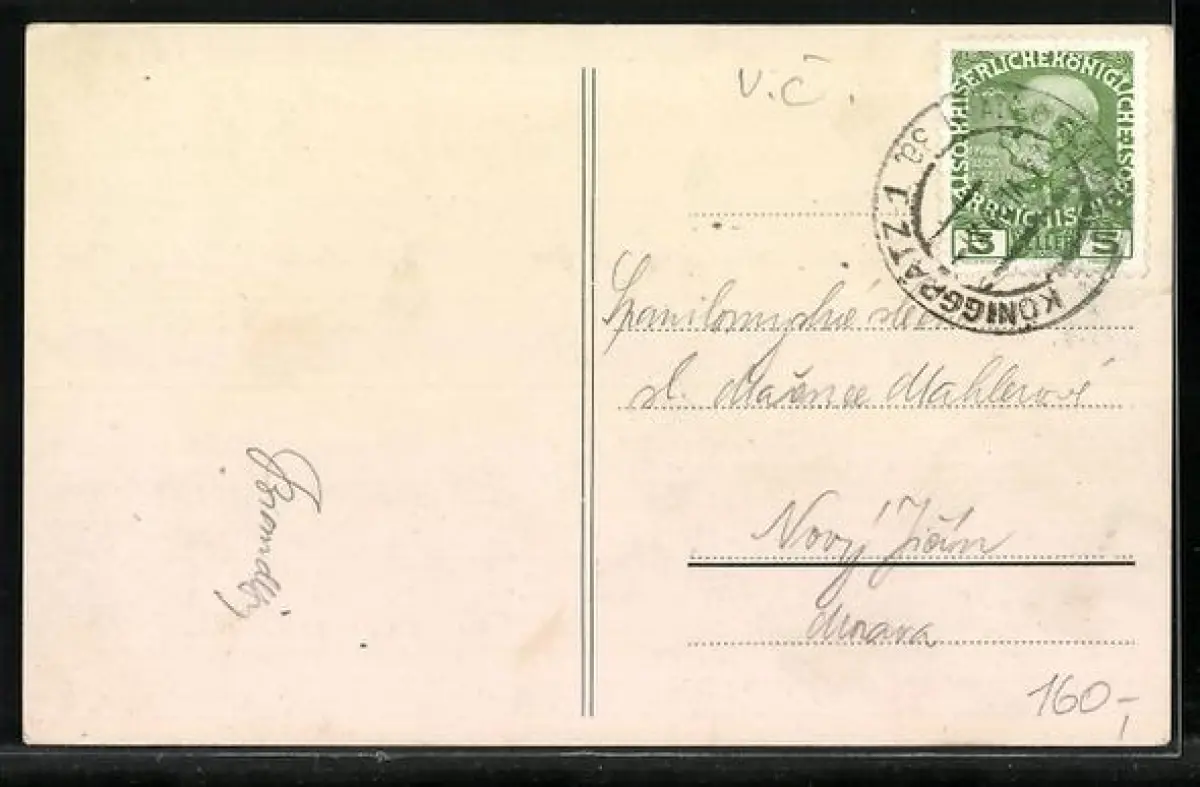 V.Č.
KAISERLICHE KÖNIGLICHE ÖSTERREICHISCHE
5 HELLER 5
KÖNIGGRÄTZ 1 3a
Spanilomyslné
sl. Mařence Mahlerové
Nový Jičín
Morava
160,-